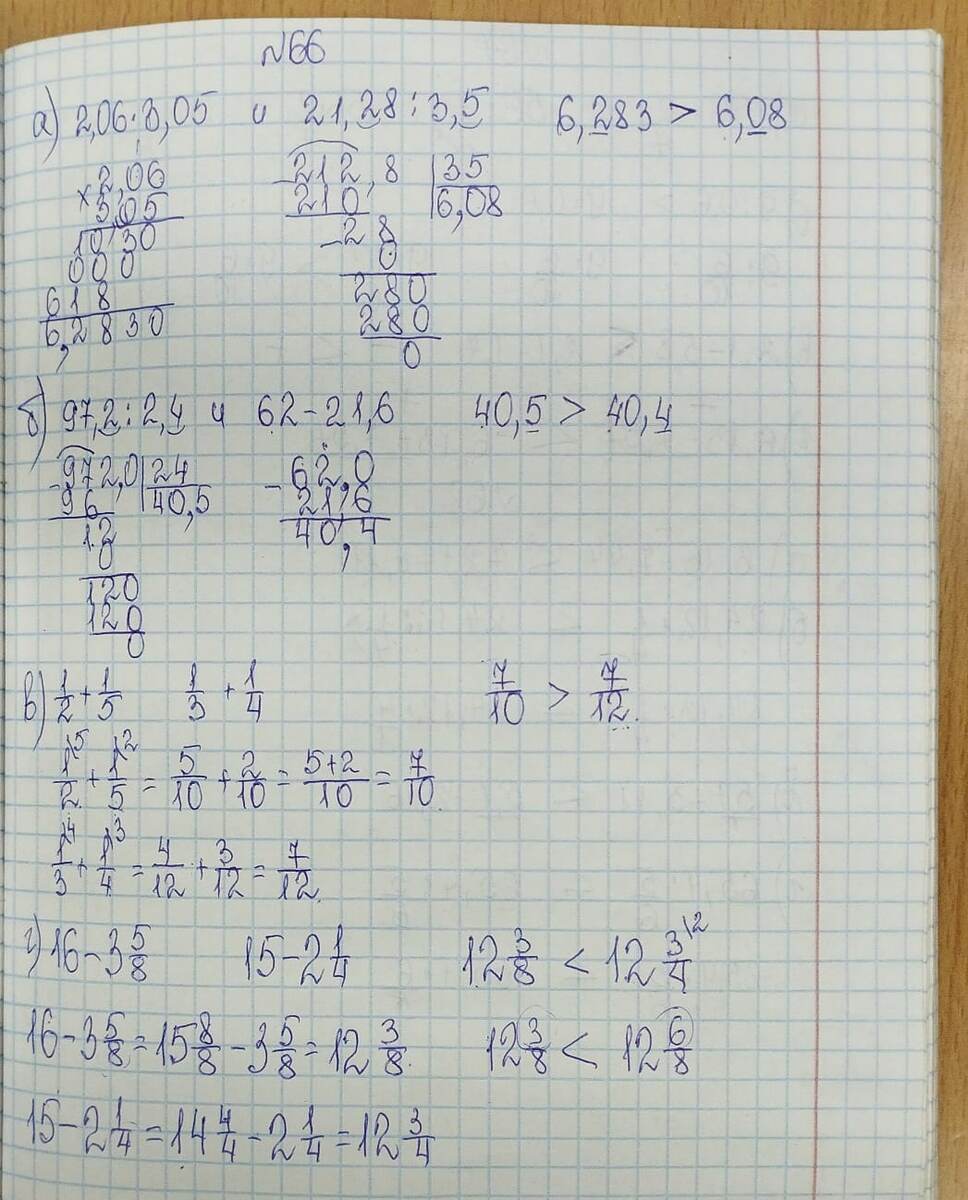 №66
а) 2,06 · 3,05 и 21,28 : 3,5 6,283 > 6,08
2,06
× 3,05
1030
000
618
6,2830
- 212,8 | 35
210 | 6,08
- 28
0
280
280
0
б) 97,2 : 2,4 и 62 - 21,6 40,5 > 40,4
- 972,0 | 24
96 | 40,5
12
0
120
120
0
- 62,0
21,6
40,4
в) 1/2 + 1/5 1/3 + 1/4 7/10 > 7/12.
1/2 ⁵ + 1/5 ² = 5/10 + 2/10 = (5+2)/10 = 7/10.
1/3 ⁴ + 1/4 ³ = 4/12 + 3/12 = 7/12.
г) 16 - 3 5/8 15 - 2 1/4 12 3/8 < 12 3/4 ²
16 - 3 5/8 = 15 8/8 - 3 5/8 = 12 3/8. 12 3/8 < 12 6/8
15 - 2 1/4 = 14 4/4 - 2 1/4 = 12 3/4